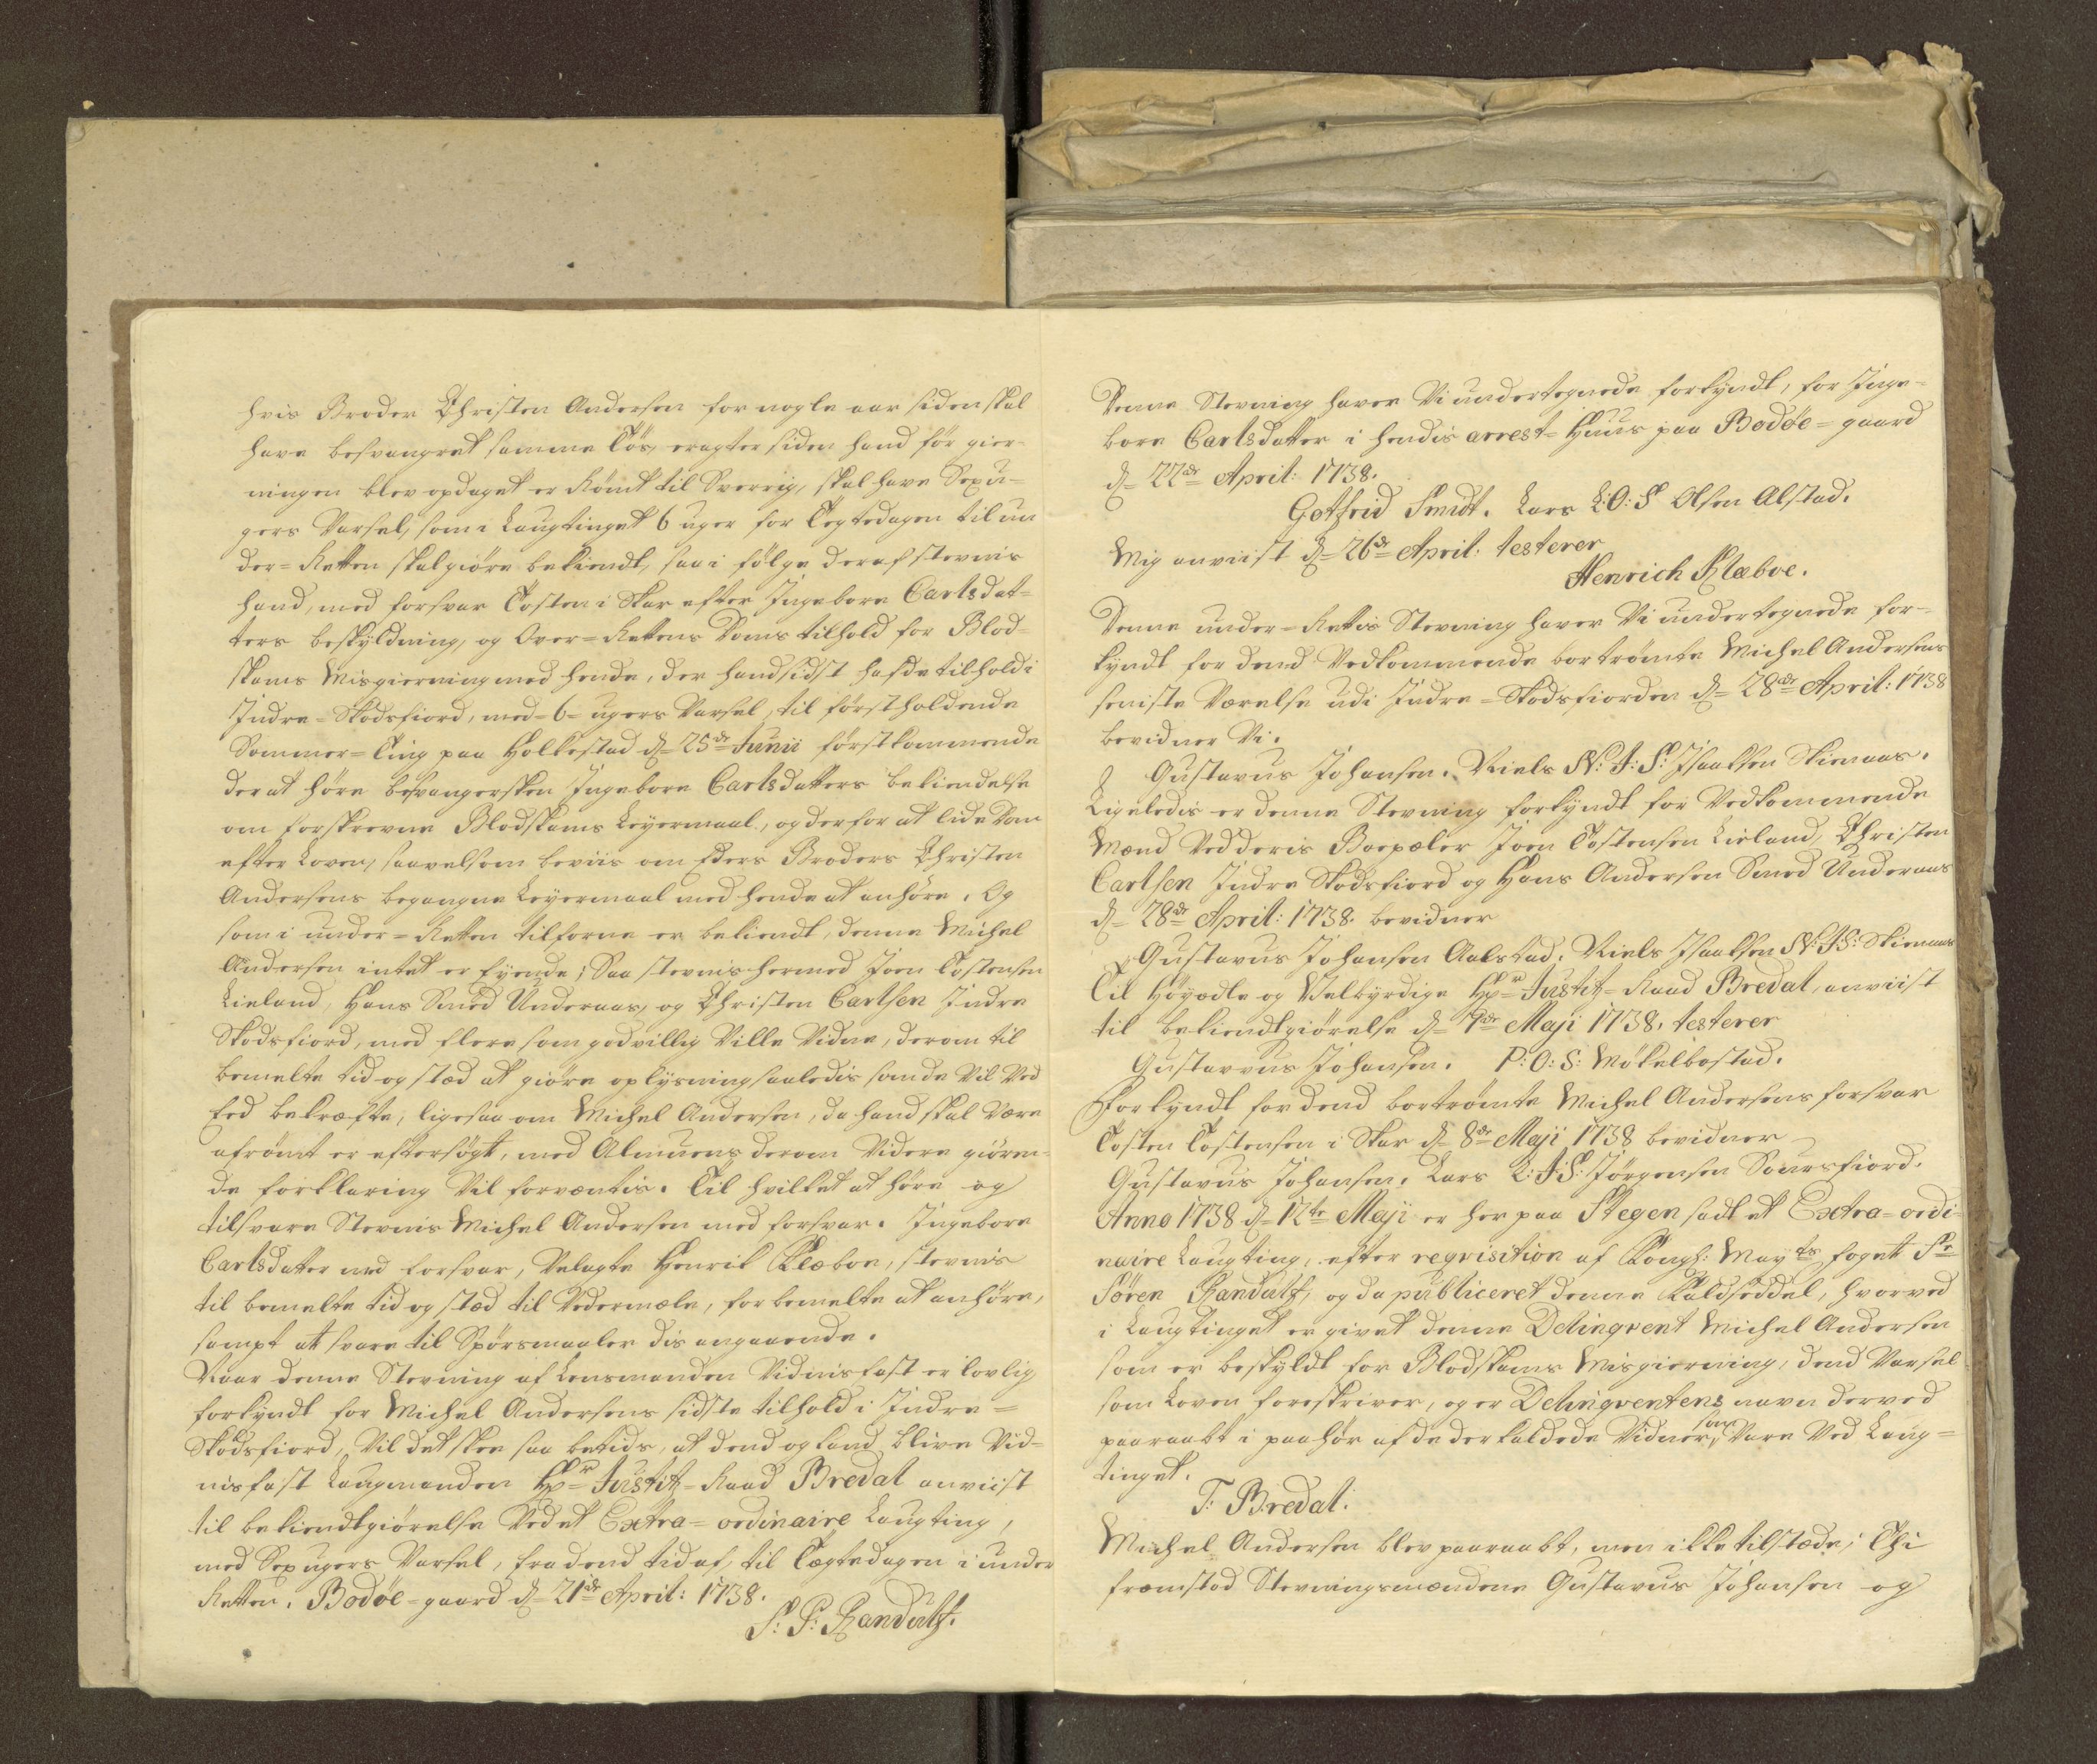 hvis Broder Christen Andersen for nogle aar siden skal
have besvangret samme Tøs, eragter siden hand før gier-
ningen blev opdaget er Rømt til Sverrig, skal have Sex u-
gers Varsel, som i Laugtinget 6 uger for Tegtedagen til un
der-Retten skal giøre bekiendt, saa i følge deraf stevnis
hand, med forsvar Tosten i Skar efter Ingebore Carlsdat-
ters beskyldning, og Over-Rettens Doms tilhold for Blod-
skams Misgierning med hende, der hand sidst hafde tilhold i
Indre-Skodsfiord, med-6-ugers Varsel, til førstholdende
Sommer-Ting paa Holkestad d. 25de Junii førstkommende
der at høre besvangersken Ingebore Carlsdatters bekiendelse
om forskrevne Blodskams Leyermaal, og derfor at lide Dom
efter Loven, saavelsom beviis om Eders Broders Christen
Andersens begangne Leyermaal med hende at anhøre. Og
som i under-Retten tilforne er bekiendt, denne Michel
Andersen intet er Eyende; Saa stevnis hermed Joen Tostensen
Lieland, Hans Smed Underaas, og Christen Carlsen Indre
Skodsfiord, med flere som godvillig Ville Vidne, derom til
bemelte tid og stæd at giøre oplysning saaledis somde Vil Ved
Eed bekræfte, ligesaa om Michel Andersen, da hand skal Være
afrømt er eftersøgt, med Almuens derom Videre giøren-
de forklaring Vil forventis. Til hvilket at høre og
tilsvare Stevnis Michel Andersen med forsvar. Ingebore
Carlsdatter med forsvar, Velagte Henrik Klæboe, stevnis
til bemelte tid og stæd til Vedermæle, forbemelte at anhøre,
sampt at svare til Spørsmaaler dis angaaende.
Naar denne Stevning af Lensmanden Vidnisfast er lovlig
forkyndt for Michel Andersens sidste tilhold i Indre-
Skodsfiord, Vil det skee saa betids, at dend og kand blive Vid-
nisfast Laugmanden Hr. Justitz-Raad Bredal anviist
til bekiendtgiørelse Ved et Extra-ordinaire Laugting,
med Sex ugers Varsel, fra dend tid af, til Tægtedagen i under
Retten. Bodøe-gaard d. 21de April: 1738.
S: P: Randulf.
Denne Stevning haver Vi undertegnede forkyndt, for Inge-
bore Carlsdatter i hendis arrest-Huus paa Bodøe-gaard
d. 22de April: 1738.
Gotfred Smidt. Lars L:O:S Olsen Alstad.
Mig anviist d. 26de April. testerer
Henrich Klæboe.
Denne under-Rettis Stevning haver Vi undertegnede for-
kyndt for dend Vedkommende bortrømte Michel Andersens
seniste Værelse udi Indre-Skodsfiorden d. 28de April: 1738
bevidner Vi.
Gustavus Johansen. Niels N: I: S: Isaaksen Skienaas.
Ligeledis er denne Stevning forkyndt for Vedkommende
Mænd Ved deris Boepæler Joen Tostensen Lieland, Christen
Carlsen Indre Skodsfiord og Hans Andersen Smed Underaas
d. 28de April: 1738. bevidner
Gustavus Johansen Aalstad. Niels Isaaksen N: I S: Skienaas
Til Høyædle og Velbyrdige Hr. Justitz-Raad Bredal, anviist
til bekiendtgiørelse d. 7de Maji 1738. testerer
Gustavvus Johansen. P: O: S: Møkelbostad.
Forkyndt for dend bortrømte Michel Andersens forsvar
Tosten Tostensen i Skar d. 8de Maji 1738 bevidner
Gustavus Johansen. Lars L: I: S: Jørgensen Sørsfiord.
Anno 1738 d. 12te Maji er her paa Stegen sadt et Extra-ordi-
naire Laugting, efter reqvisition af Kongl: Mayts foget Sr
Søren Randulf, og da publiceret denne Kaldseddel, hvorved
i Laugtinget er givet denne Delinqvent Michel Andersen
som er beskyldt for Blodskams Misgierning, dend Varsel
som Loven foreskriver, og er Delinqventens navn derved
paaraabt i paahør af de der kaldede Vidner, som Vare Ved Laug-
tinget.
T. Bredal.
Michel Andersen blev paaraabt, men ikke tilstæde; Thi
fremstod Stevningsmændene Gustavus Johansen og